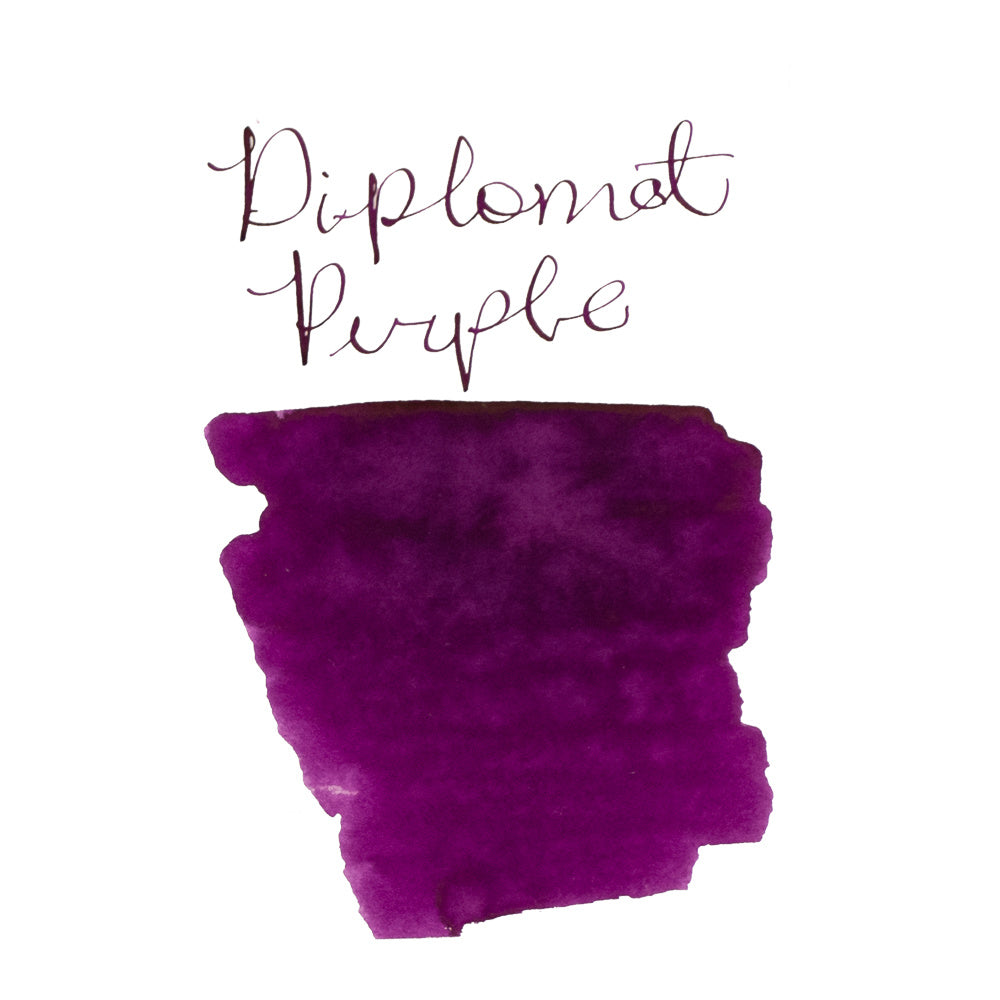 Diplomat
Purple